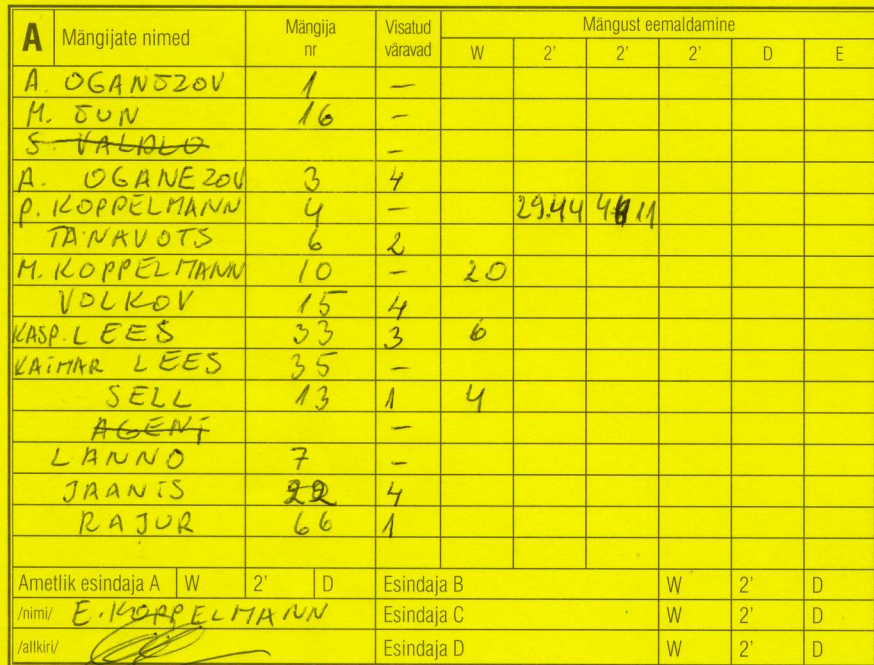 A Mängijate nimed Mängija nr Visatud väravad Mängust eemaldamine
W 2' 2' 2' D E
A. OGANEZOV 1 –
M. ÕUN 16 –
S. VALDLO –
A. OGANEZOV 3 4
P. KOPPELMANN 4 – 29.44 41 11
TANAVOTS 6 2
M. KOPPELMANN 10 – 20
VOLKOV 15 4
KASP. LEES 33 3 6
KAIMAR LEES 35 –
SELL 13 1 4
AGENT –
LANNO 7 –
JAANIS 22 4
RAJUR 66 1
Ametlik esindaja A W 2' D Esindaja B W 2' D
/nimi/ E. KOPPELMANN Esindaja C W 2' D
/allkiri/ Esindaja D W 2' D